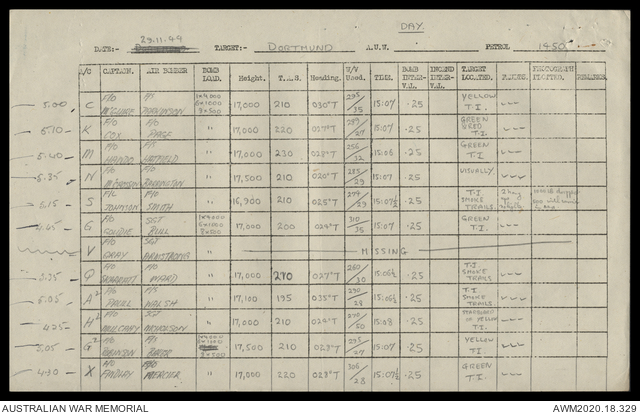 DAY.
29.11.44
DATE:- TARGET:- DORTMUND A.U.W. PETROL 1450
A/C CAPTAIN. AIR BOMBER BOMB LOAD. Height. T.A.S. Heading. W/V Used. TIME. BOMB INTER-VAL INCEND INTER-VAL TARGET LOCATED. PHOTOGRAPH PLOTTED. REMARKS.
5.00 C F/O McGUIRE F/S PARKINSON 1x4000 6x1000 17,000 210 030°T 295/35 15:07 .25 YELLOW T.I.
5.10 K F/O COX F/O PAGE " 17,000 220 027°T 299/27 15:07 .25 GREEN & RED T.I.
5.40 M F/O F/O HATFIELD " 17,000 230 028°T 256/32 15:06 .25 GREEN T.I.
5.35 N F/O F/O " 17,500 210 020°T 285/29 15:07 .25 VISUALLY.
5.15 S F/L JOHNSON F/O SMITH " 16,900 210 025°T 274/29 15:07½ .25 T.I. SMOKE TRAILS.
4.45 G F/O GOLDIE SGT BULL 1x4000 6x1000 2x500 17,000 200 029°T 310/35 15:07 .25 GREEN T.I.
V F/O GRAY SGT ARMSTRONG MISSING
5.25 Q F/O F/O WARD " 17,000 210 027°T 260/30 15:06½ .25 T.I. SMOKE TRAILS
5.05 A² F/O PAULL F/S WALSH " 17,100 195 035°T 290/28 15:06½ .25 T.I SMOKE TRAILS
4.25 H² F/O MULCAHY SGT NICHOLSON " 17,000 210 029°T 270/50 15:08 .25 OF YELLOW T.I.
5.05 G² F/O ROBINSON F/S 17,500 210 023°T 295/27 15:07 .25 YELLOW T.I.
4.30 X F/O FINDLAY F/O MERCIER " 17,000 220 028°T 306/28 15:07½ .25 GREEN T.I.
AUSTRALIAN WAR MEMORIAL AWM2020.18.329